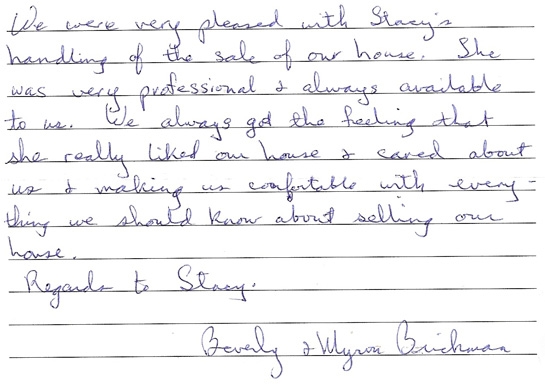 We were very pleased with Stacy's
handling of the sale of our house. She
was very professional & always available
to us. We always got the feeling that
she really liked our house & cared about
us & making us comfortable with every-
thing we should know about selling our
house.
Regards to Stacy.
Beverly & Myron Brickman